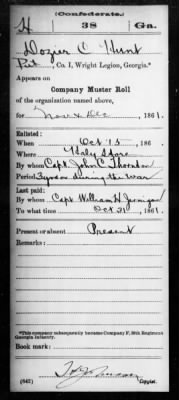 (Confederate.)
H 38 Ga.
Dozier C Hunt
Pvt, Co. I, Wright Legion, Georgia.*
Appears on
Company Muster Roll
of the organization named above,
for Nov & Dec, 1861.
Enlisted:
When Oct 15, 186 .
Where
By whom Capt John C Thornton
Period 3 years or during the war
Last paid:
By whom Capt William H Jernigan
To what time Oct 31, 1861.
Present or absent Present
Remarks:
*This company subsequently became Company F, 38th Regiment
Georgia Infantry.
Book mark:
(642) Copyist.